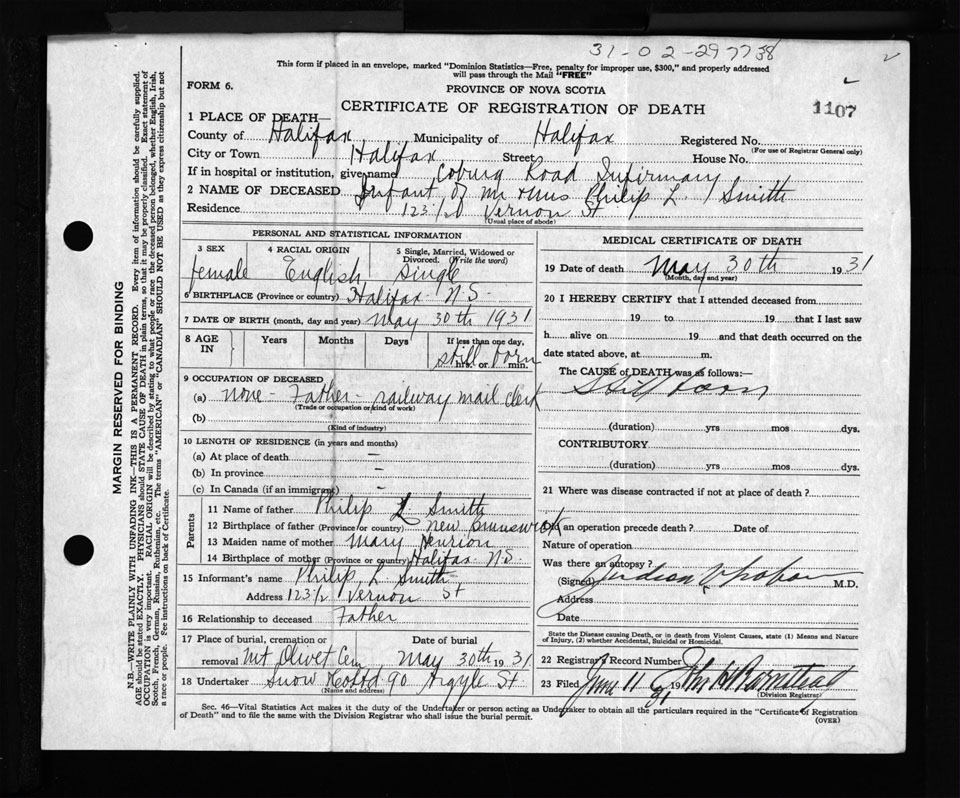 31-02-297738
This form if placed in an envelope, marked "Dominion Statistics—Free, penalty for improper use, $300," and properly addressed
will pass through the Mail "FREE"
FORM 6.
PROVINCE OF NOVA SCOTIA
CERTIFICATE OF REGISTRATION OF DEATH
1107
1 PLACE OF DEATH—
County of Halifax Municipality of Halifax Registered No.
(For use of Registrar General only)
City or Town Halifax Street House No.
If in hospital or institution, give name Coburg Road Infirmary
2 NAME OF DECEASED Infant of Mr & Mrs Philip L. Smith
Residence 123½ Vernon St
(Usual place of abode)
PERSONAL AND STATISTICAL INFORMATION
3 SEX 4 RACIAL ORIGIN 5 Single, Married, Widowed or
Divorced. (Write the word)
female English Single
6 BIRTHPLACE (Province or country) Halifax N.S.
7 DATE OF BIRTH (month, day and year) May 30th 1931
8 AGE IN Years Months Days If less than one day,
still born
hrs. or min.
9 OCCUPATION OF DECEASED
(a) none - Father - railway mail clerk
(Trade or occupation or kind of work)
(b)
(Kind of industry)
10 LENGTH OF RESIDENCE (in years and months)
(a) At place of death —
(b) In province —
(c) In Canada (if an immigrant) -
Parents
11 Name of father Philip L Smith
12 Birthplace of father (Province or country) New Brunswick
13 Maiden name of mother Mary
14 Birthplace of mother (Province or country) Halifax N.S.
15 Informant's name Philip L Smith
Address 123½ Vernon St
16 Relationship to deceased Father
17 Place of burial, cremation or Date of burial
removal Mt Olivet Cem May 30th 1931
18 Undertaker Snow & Co Ltd 90 Argyle St.
(Name and address)
MEDICAL CERTIFICATE OF DEATH
19 Date of death May 30th 1931
(Month, day and year)
20 I HEREBY CERTIFY that I attended deceased from
19 to 19 that I last saw
h alive on 19 and that death occurred on the
date stated above, at m.
The CAUSE of DEATH was as follows:
Still born
(duration) yrs mos dys.
CONTRIBUTORY
(duration) yrs mos dys.
21 Where was disease contracted if not at place of death?
Did an operation precede death? Date of
Nature of operation
Was there an autopsy?
(Signed) M.D.
Address
Date
State the Disease causing Death, or in death from Violent Causes, state (1) Means and Nature
of Injury, (2) whether Accidental, Suicidal or Homicidal.
22 Registrar's Record Number
23 Filed June 11 1931
(Division Registrar)
Sec. 46—Vital Statistics Act makes it the duty of the Undertaker or person acting as Undertaker to obtain all the particulars required in the "Certificate of Registration
of Death" and to file the same with the Division Registrar who shall issue the burial permit.
(OVER)
MARGIN RESERVED FOR BINDING
N.B.—WRITE PLAINLY WITH UNFADING INK—THIS IS A PERMANENT RECORD. Every item of information should be carefully supplied.
AGE should be stated EXACTLY. PHYSICIANS should STATE CAUSE OF DEATH in plain terms, so that it may be properly classified. Exact statement of
OCCUPATION is very important. RACIAL ORIGIN will be described by stating to what people or race the deceased person belonged, whether English, Irish,
Scotch, French, German, Russian, Ruthenian, etc. The terms "AMERICAN" or "CANADIAN" SHOULD NOT BE USED as they express citizenship but not
a race or people. Fee instructions on back of Certificate.